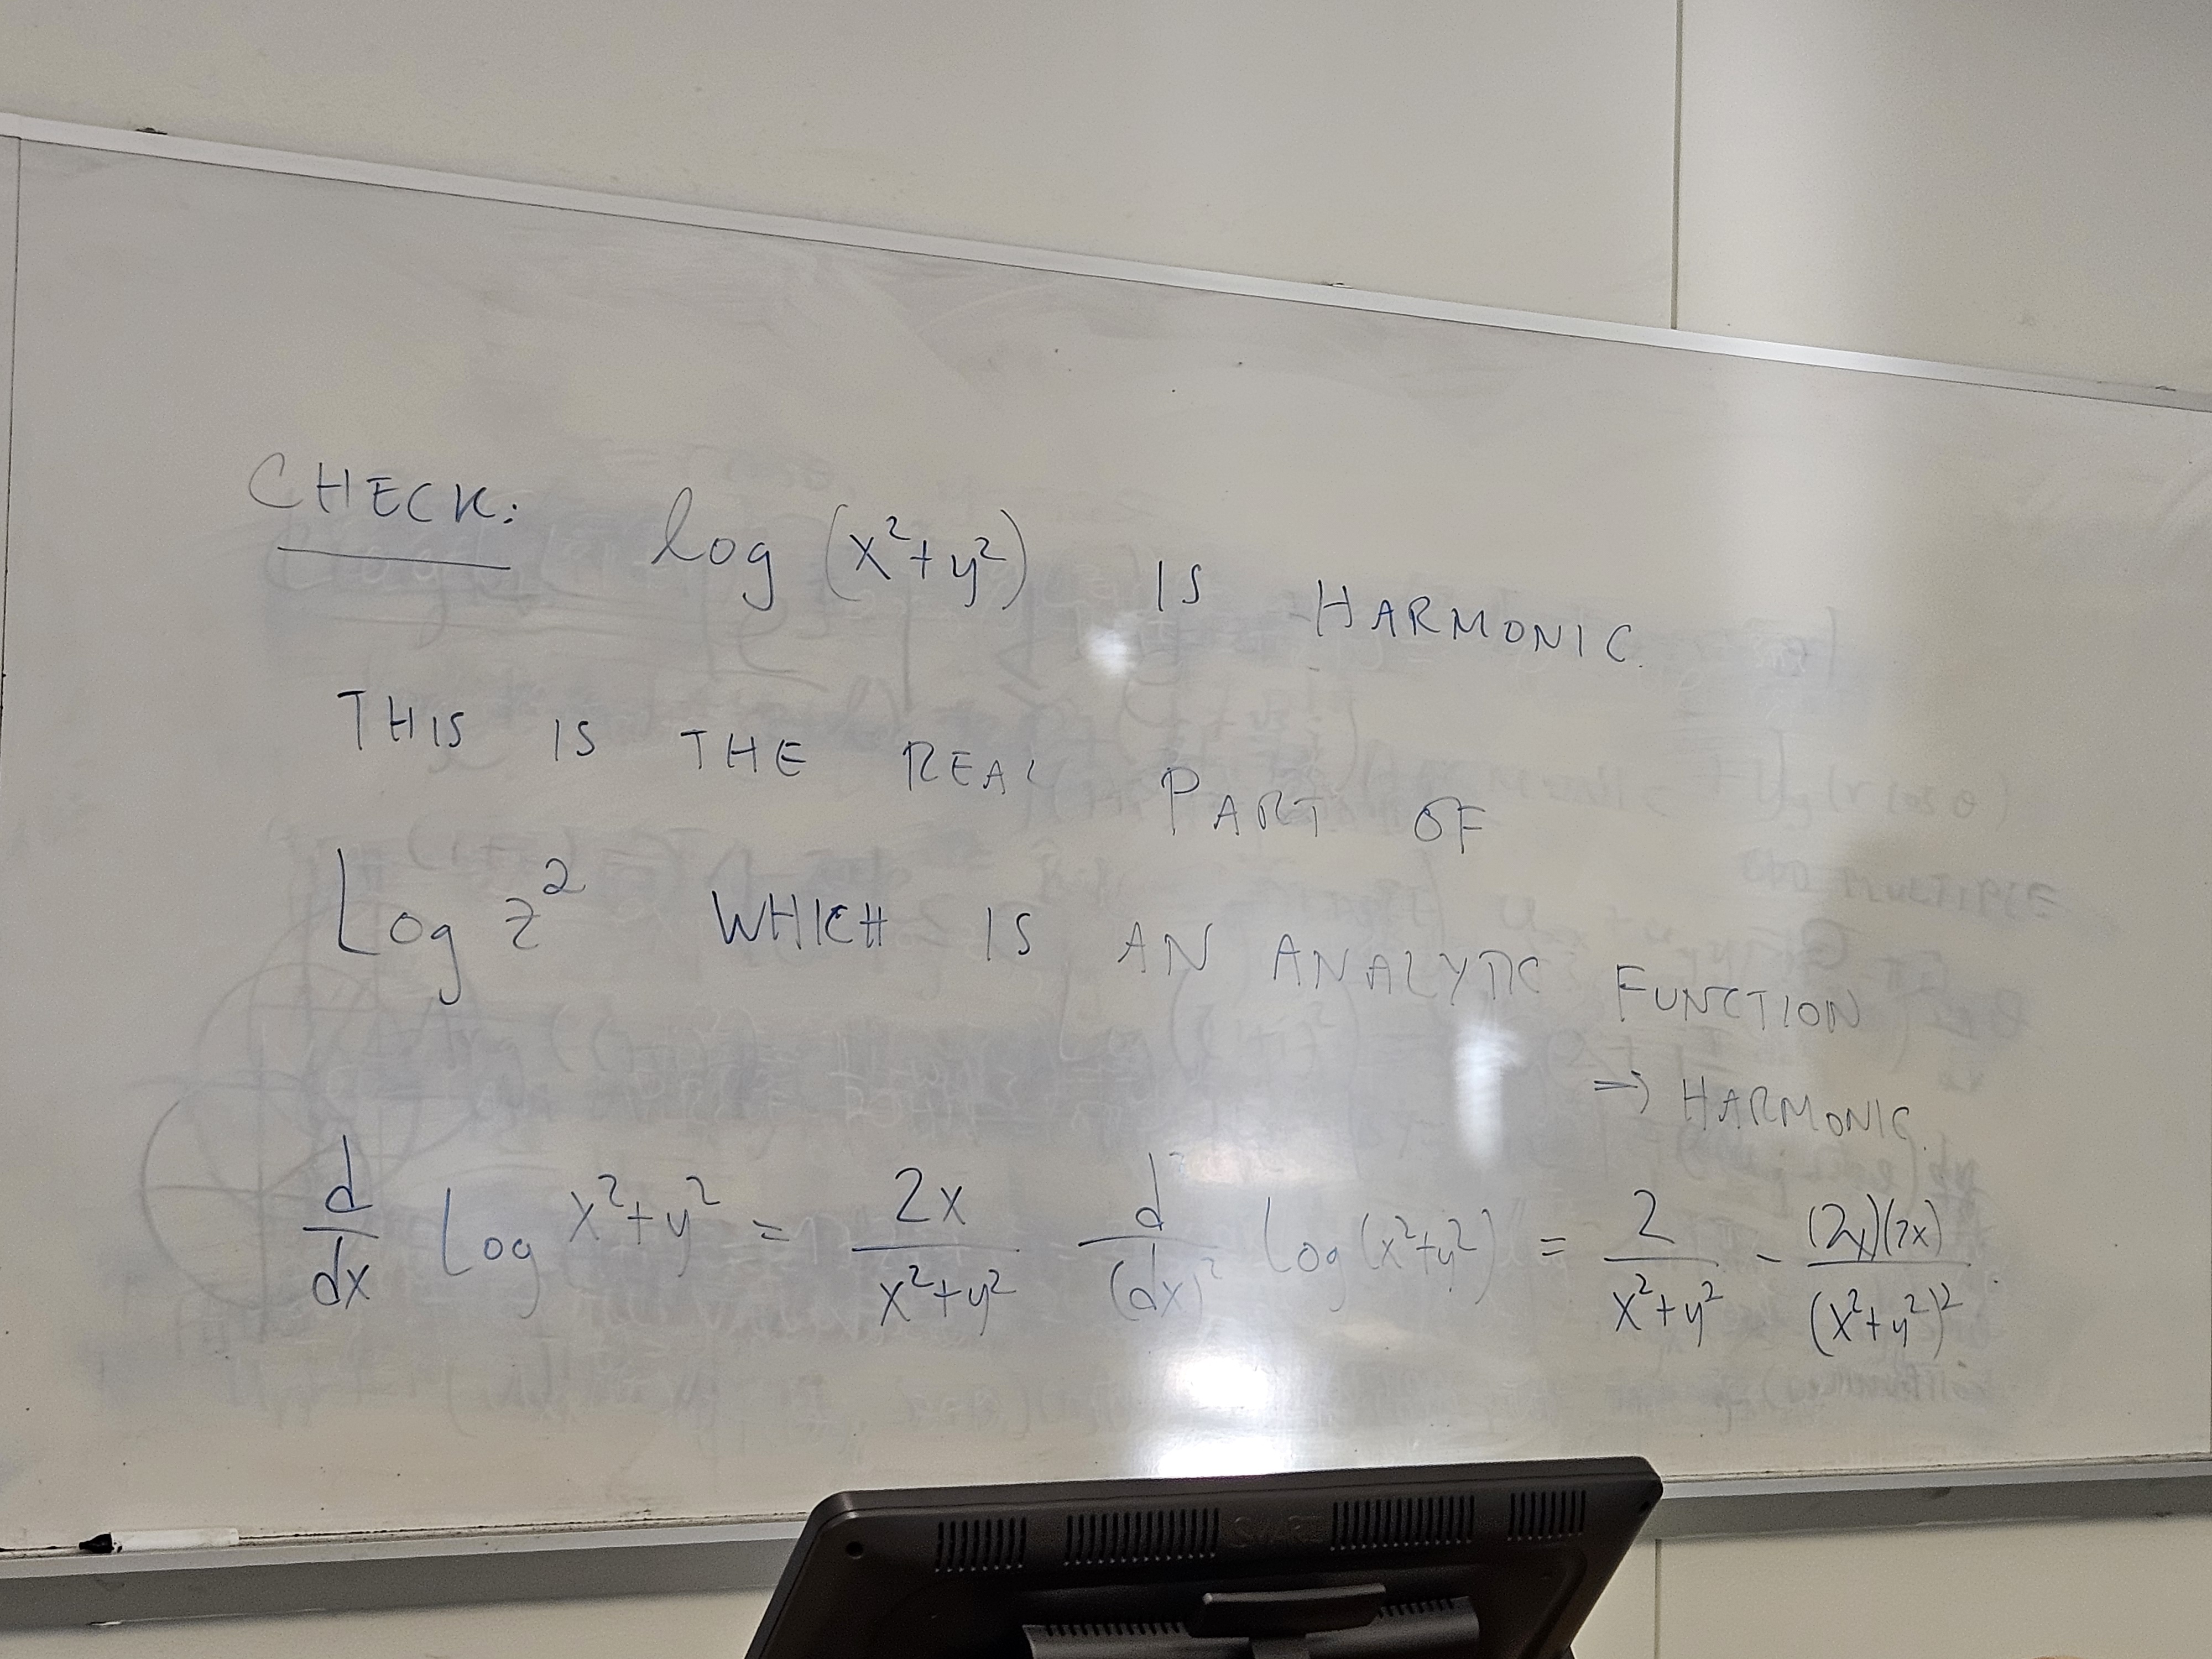 CHECK: log (x²+y²) IS HARMONIC.
THIS IS THE REAL PART OF
Log z² WHICH IS AN ANALYTIC FUNCTION
⇒ HARMONIC.
d/dx Log x²+y² = 2x/(x²+y²) d²/(dx)² Log (x²+y²) = 2/(x²+y²) - (2x)(2x)/(x²+y²)².
SMART